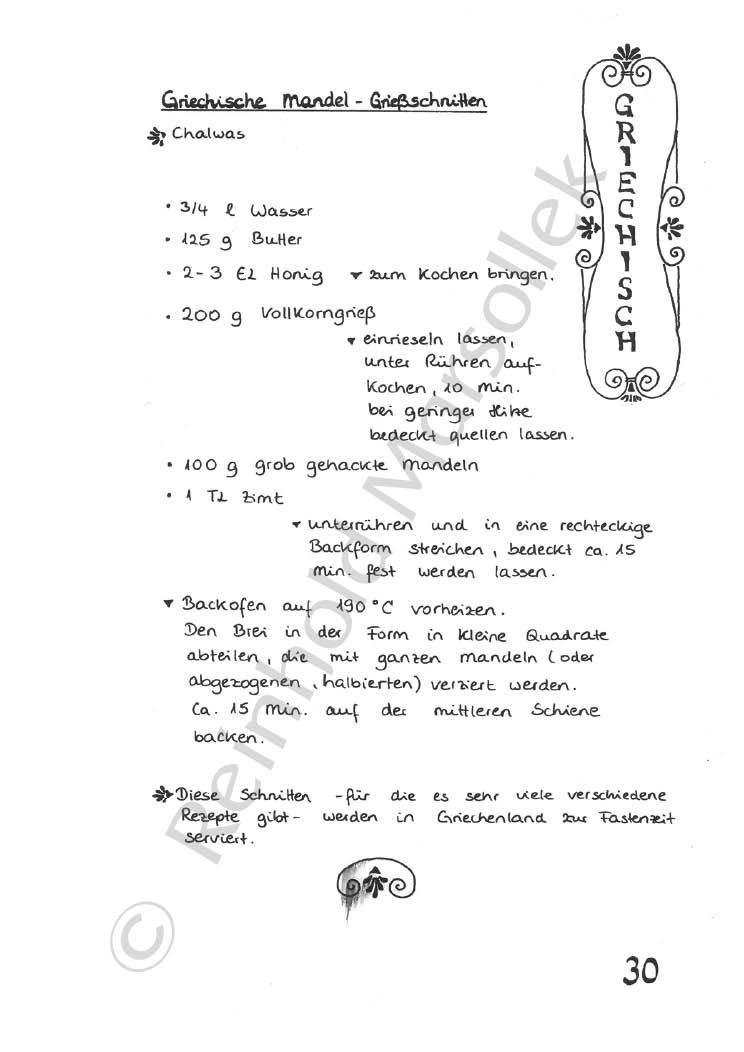 Griechische Mandel - Grießschnitten
Chalwas
GRIECHISCH
• 3/4 l Wasser
• 125 g Butter
• 2-3 EL Honig ▾ zum Kochen bringen.
• 200 g Vollkorngrieß
▾ einrieseln lassen,
unter Rühren auf-
kochen, 10 min.
bei geringer Hitze
bedeckt quellen lassen.
• 100 g grob gehackte Mandeln
• 1 TL Zimt
▾ unterrühren und in eine rechteckige
Backform streichen, bedeckt ca. 15
Min. fest werden lassen.
▾ Backofen auf 190 °C vorheizen.
Den Brei in der Form in kleine Quadrate
abteilen, die mit ganzen Mandeln (oder
abgezogenen, halbierten) verziert werden.
Ca. 15 Min. auf der mittleren Schiene
backen.
Diese Schnitten - für die es sehr viele verschiedene
Rezepte gibt - werden in Griechenland zur Fastenzeit
serviert.
© Reinhold Marsollek
30